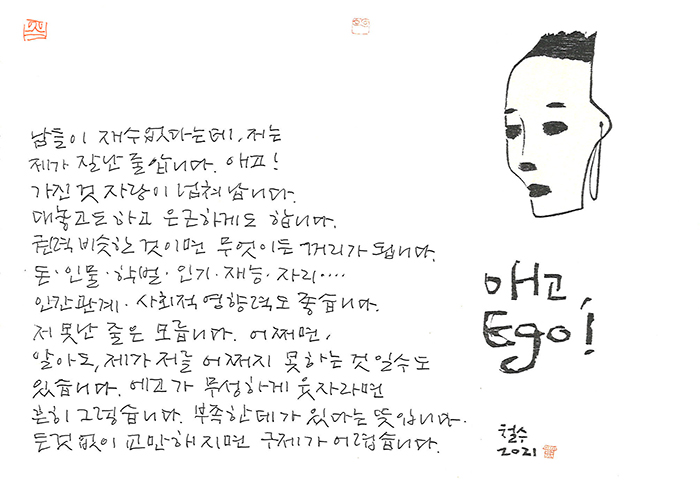 남들이 재수없다는데, 저는
제가 잘난 줄 압니다. 애고!
가진 것 자랑이 넘쳐납니다.
대놓고도 하고 은근하게도 합니다.
권력 비슷한 것이면 무엇이든 꺼리가 됩니다.
돈·인물·학벌·인기·재능·자리····
인간관계·사회적 영향력도 좋습니다.
저 못난 줄은 모릅니다. 어쩌면,
알아도, 제가 저를 어쩌지 못하는 것일수도
있습니다. 에고가 무성하게 웃자라면
흔히 그렇습니다. 부족한데가 있다는 뜻입니다.
든것 없이 교만해지면 구제가 어렵습니다.
애고,
Ego!
철수
2021